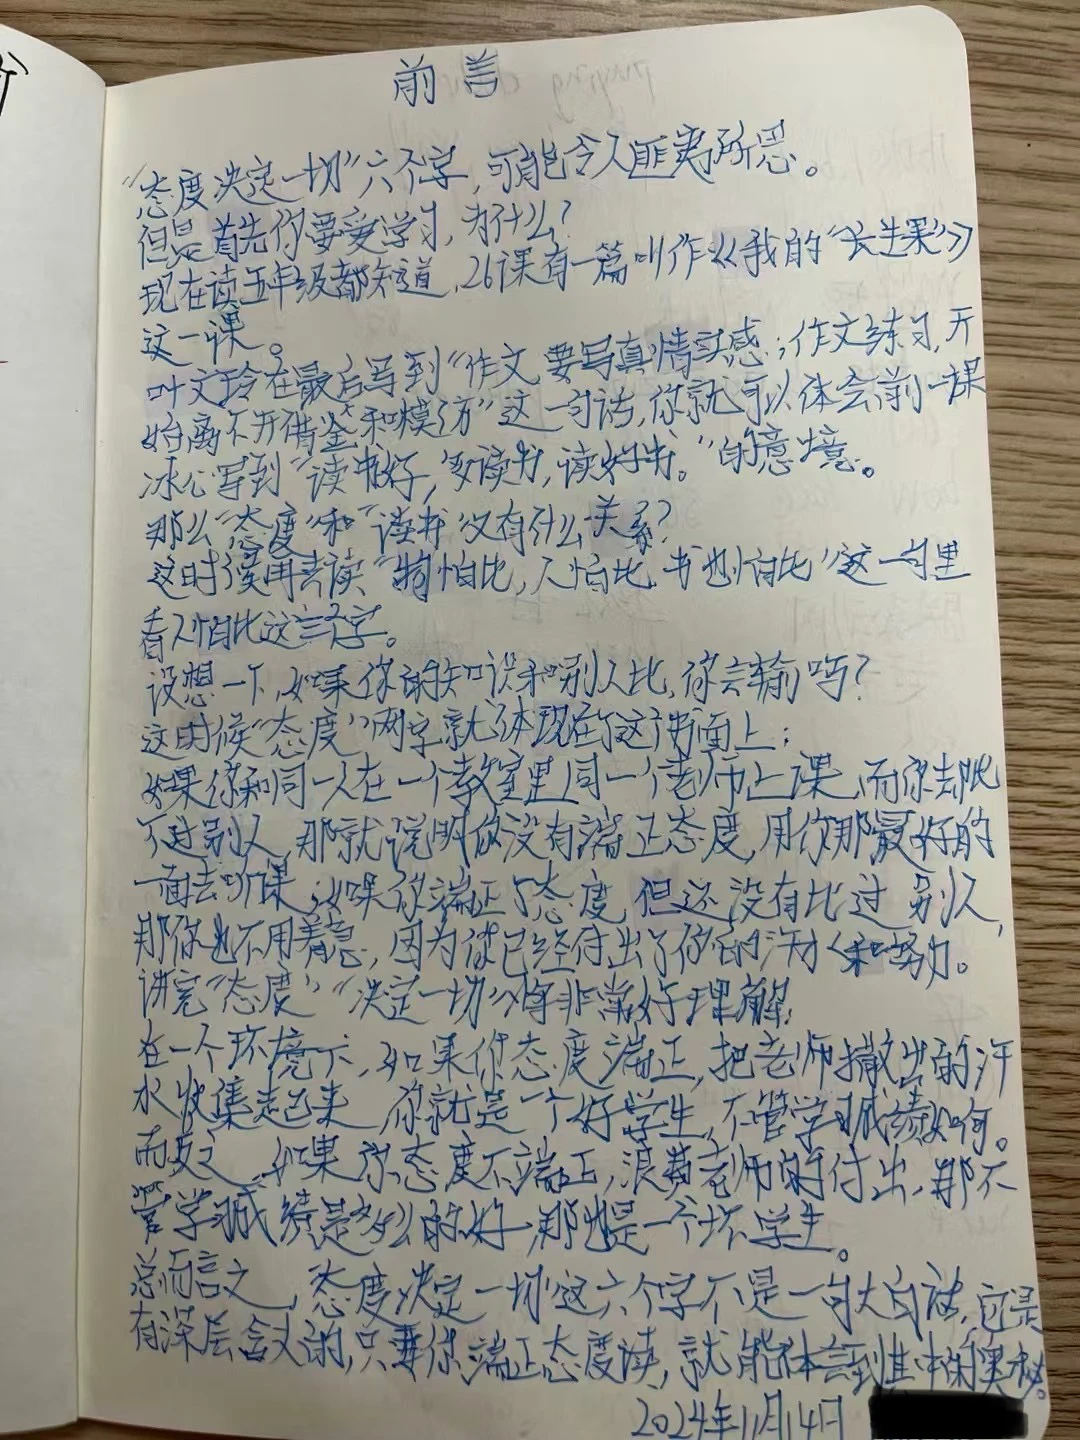 前言
“态度决定一切”六个字，可能令人匪夷所思。
但是首先你要爱学习，为什么？
现在读五年级都知道，26课有一篇叫作《我的“长生果”》
这一课。
叶文玲在最后写到“作文，要写真情实感；作文练习，开
始离不开借鉴和模仿”这一句话，你就可以体会前一课
冰心写到“读书好，多读书，读好书。”的意境。
那么“态度”和“读书”又有什么关系？
这时候再去读“物怕比，人怕比，书也怕比”这一句里
看人怕比这三个字。
设想一下，如果你的知识和别人比，你会输吗？
这时候“态度”两字就体现在了这方面上；
如果你和同一人在一个教室里同一个老师上课，而你去比
不过别人，那就说明你没有端正态度，用你那最好的
一面去听课；如果你端正了态度，但还没有比过别人，
那你也不用着急，因为你已经付出了你的汗水和努力。
讲完“态度”，“决定一切”将非常好理解！
在一个环境下，如果你态度端正，把老师撒出的汗
水收集起来，你就是一个好学生，不管学习成绩如何。
而反之，如果你态度不端正，浪费老师的付出，那不
管学习成绩是多么的好，那也是一个坏学生。
总而言之，态度决定一切这六个字不是一句大白话，它是
有深层含义的，只要你端正态度读，就能体会到其中的奥秘。
2024年11月14日